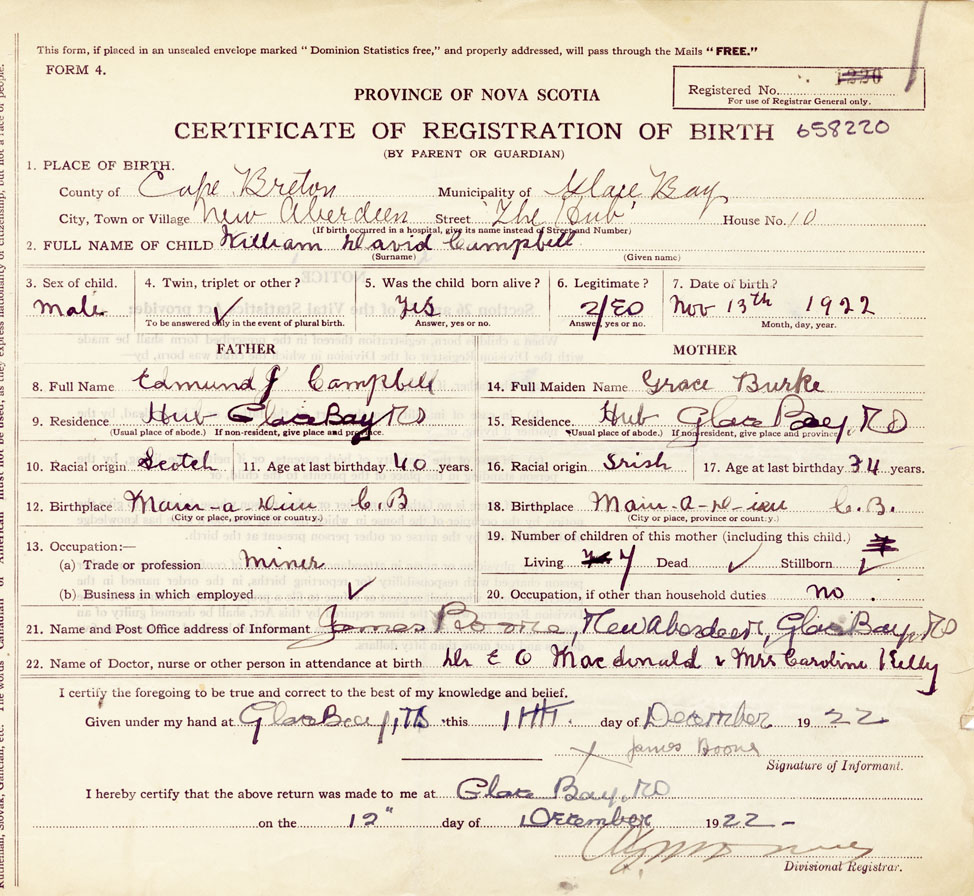 This form, if placed in an unsealed envelope marked "Dominion Statistics free," and properly addressed, will pass through the Mails "FREE."
FORM 4.
Registered No. 1220
For use of Registrar General only.
PROVINCE OF NOVA SCOTIA
CERTIFICATE OF REGISTRATION OF BIRTH 658220
(BY PARENT OR GUARDIAN)
1. PLACE OF BIRTH.
County of Cape Breton Municipality of Glace Bay
City, Town or Village New Aberdeen Street 'The Hub' House No. 10
(If birth occurred in a hospital, give its name instead of Street and Number)
2. FULL NAME OF CHILD William David Campbell
(Surname) (Given name)
3. Sex of child. 4. Twin, triplet or other? 5. Was the child born alive? 6. Legitimate? 7. Date of birth?
Male ✓ Yes Nov 13th 1922
To be answered only in the event of plural birth. Answer, yes or no. Answer, yes or no. Month, day, year.
FATHER MOTHER
8. Full Name Edmund J Campbell 14. Full Maiden Name Grace Burke
9. Residence Hub Glace Bay, NS 15. Residence. Hub Glace Bay, NS
(Usual place of abode.) If non-resident, give place and province. (Usual place of abode.) If non-resident, give place and province
10. Racial origin Scotch 11. Age at last birthday 40 years. 16. Racial origin Irish 17. Age at last birthday 34 years.
12. Birthplace Main-a-Dieu C.B 18. Birthplace Main-a-Dieu C.B.
(City or place, province or country.) (City or place, province or country.)
13. Occupation:— 19. Number of children of this mother (including this child.)
(a) Trade or profession Miner Living 7 Dead ✓ Stillborn ✓
(b) Business in which employed ✓ 20. Occupation, if other than household duties no.
21. Name and Post Office address of Informant James Boone, New Aberdeen, Glace Bay, NS
22. Name of Doctor, nurse or other person in attendance at birth Dr E O Macdonald & Mrs Caroline Kelly
I certify the foregoing to be true and correct to the best of my knowledge and belief.
Given under my hand at Glace Bay, NS this 11th. day of December 1922
X James Boone
Signature of Informant.
I hereby certify that the above return was made to me at Glace Bay, NS
on the 12" day of December 1922-
Divisional Registrar.